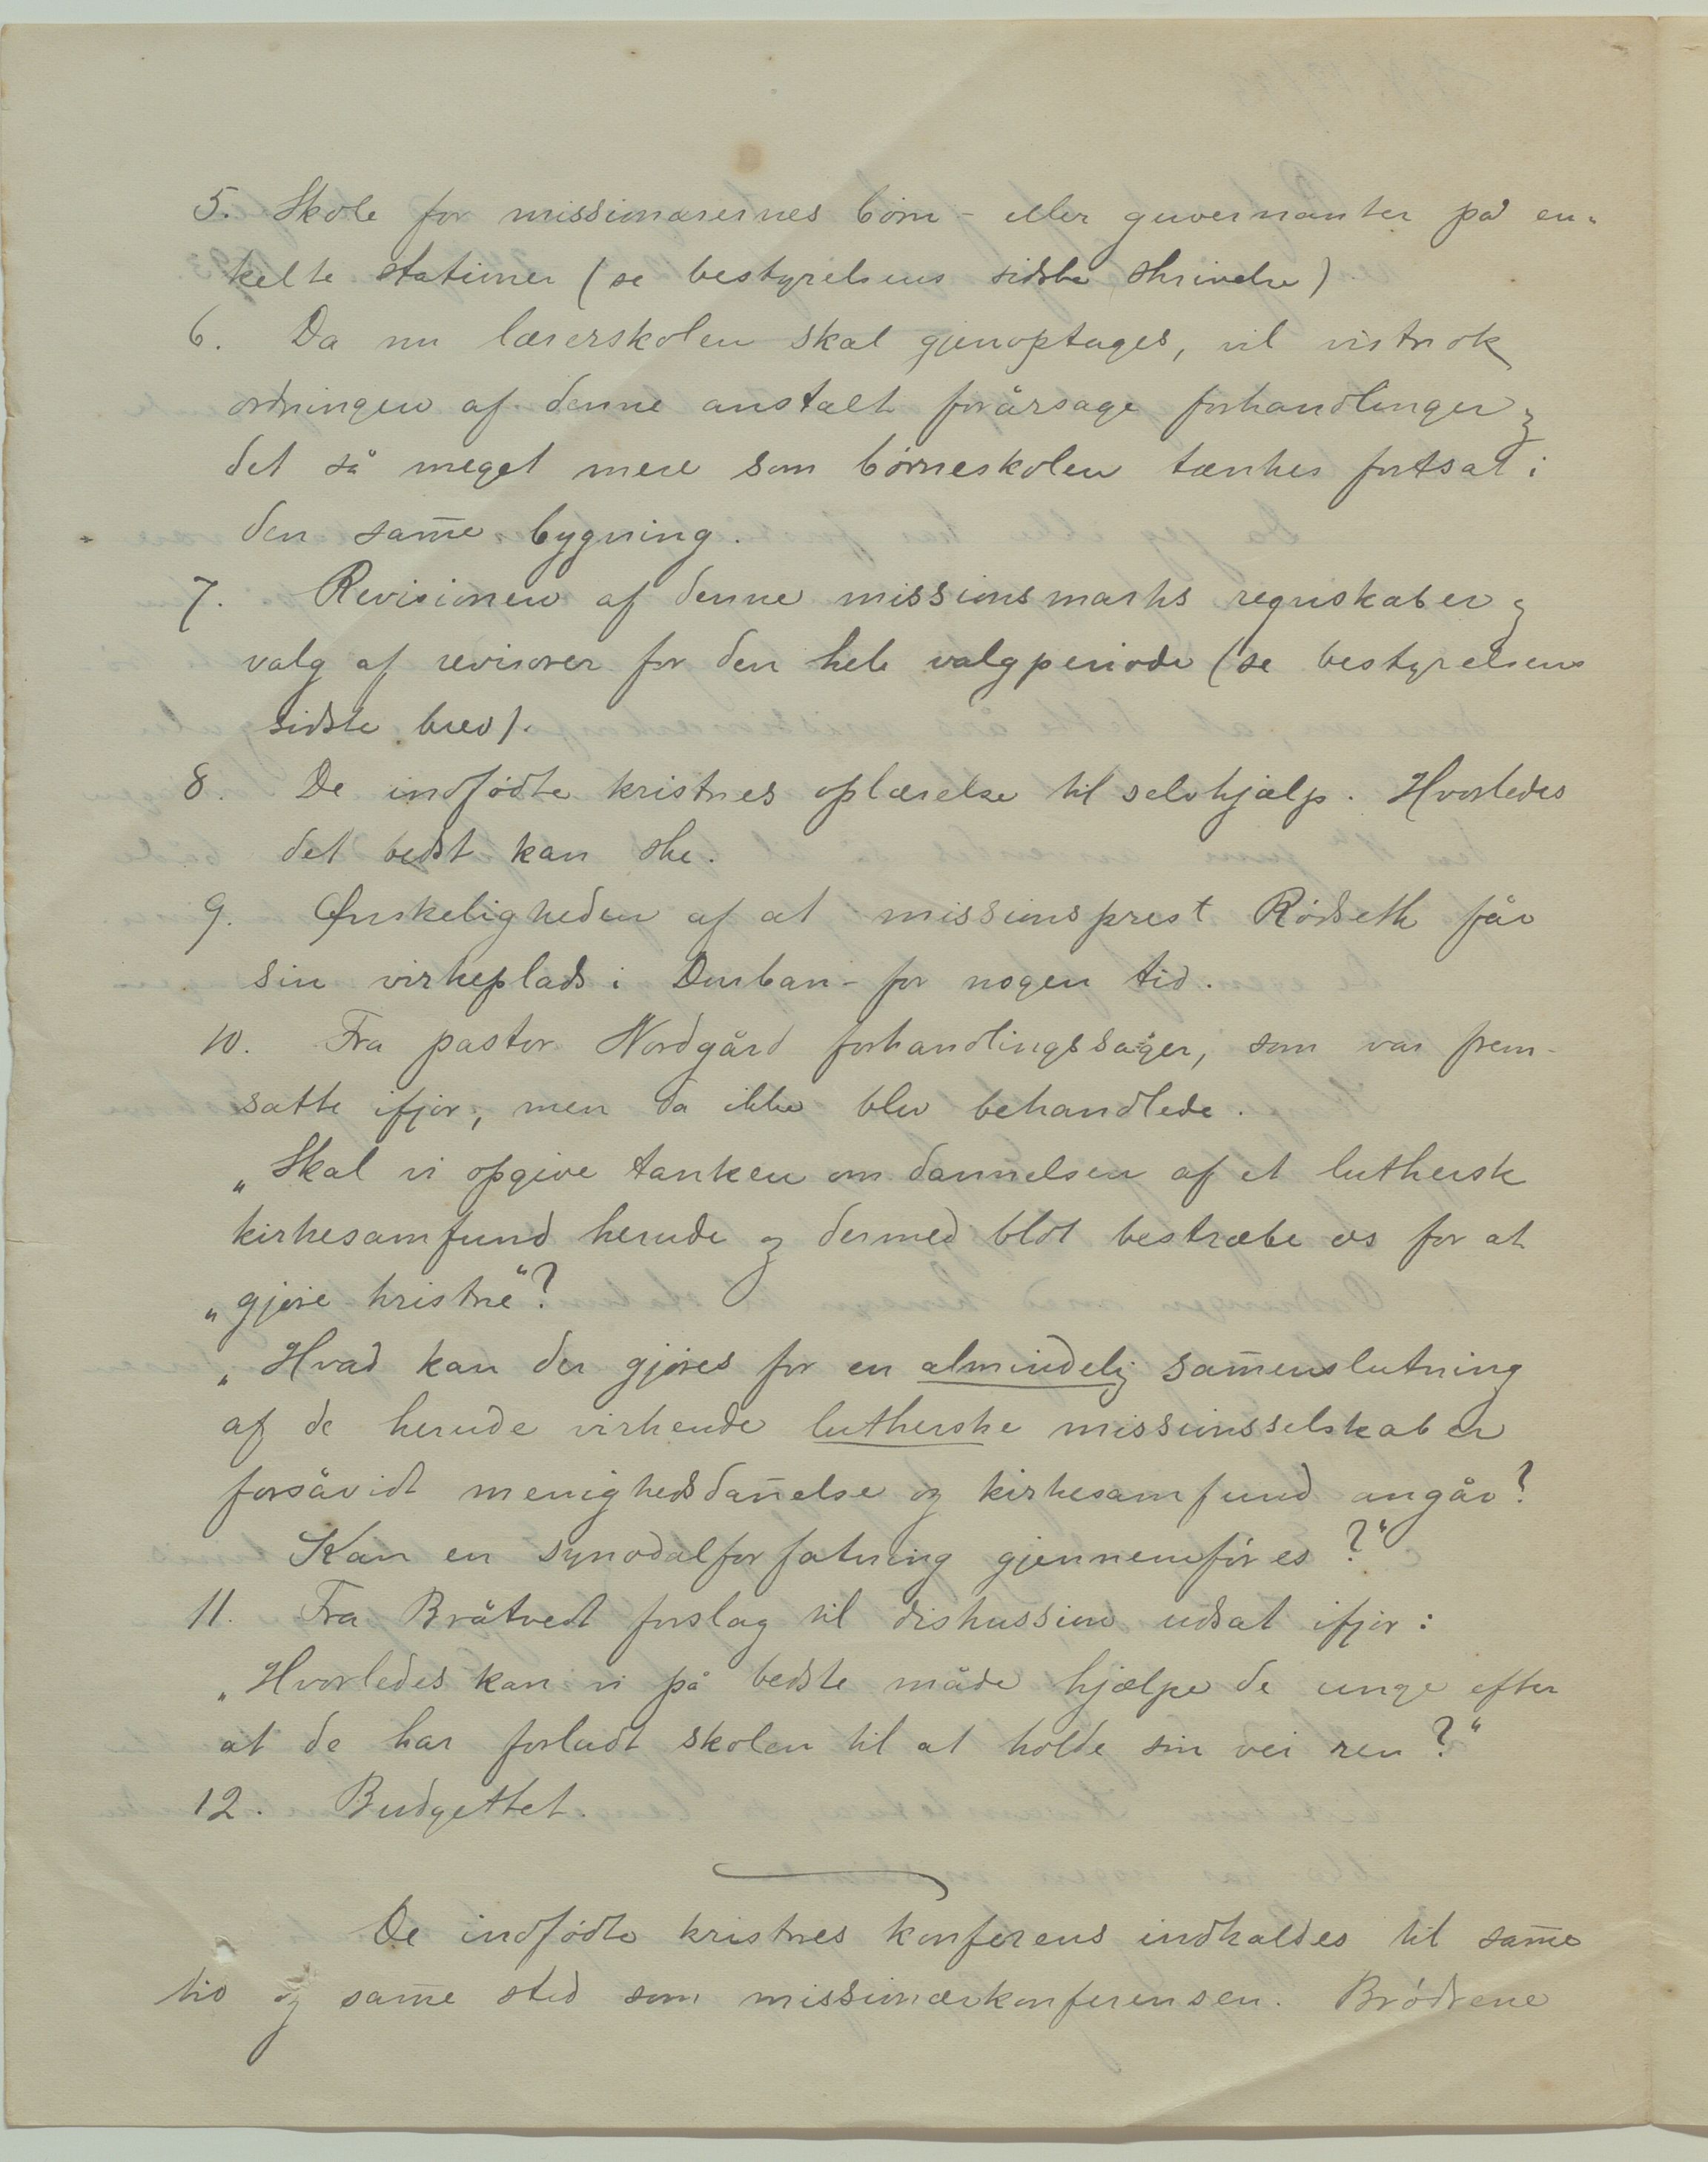 5. Skole for missionærernes börn - eller guvernanter på en-
kelte stationer (se bestyrelsens sidste skrivelse).
6. Da nu lærerskolen skal gjenoptages, vil vistnok
ordningen af denne anstalt forårsage forhandlinger og
det så meget mere som börneskolen tænkes fortsat i
den sam̄e bygning.
7. Revisionen af denne missionsmarks regnskaber og
valg af revisorer for den hele valgperiode (se bestyrelsens
sidste brev).
8. De indfödte kristnes oplærelse til selvhjælp. Hvorledes
det bedst kan ske.
9. Ønskeligheden af at missionsprest Rödseth får
sin virkeplads i Durban - for nogen tid.
10. Fra pastor Nordgård forhandlingssager, som var frem-
satte ifjor, men da ikke blev behandlede.
„Skal vi opgive tanken om dannelsen af et luthersk
kirkesamfund herude og dermed blot bestræbe os for at
„gjöre kristne“?
„Hvad kan der gjöres for en almindelig sam̄enslutning
af de herude virkende lutherske missionsselskaber
forsåvidt menighedsdan̄else og kirkesamfund angår?
Kan en synodalforfatning gjennemföres?“
11. Fra Bråtvedt forslag til diskussion udsat ifjor:
„Hvorledes kan vi på bedste måde hjælpe de unge efter
at de har forladt skolen til at holde sin vei ren?“
12. Budgettet.
De indfödte kristnes konferens indkaldes til sam̄e
tid og sam̄e sted som missionærkonferensen. Brödrene